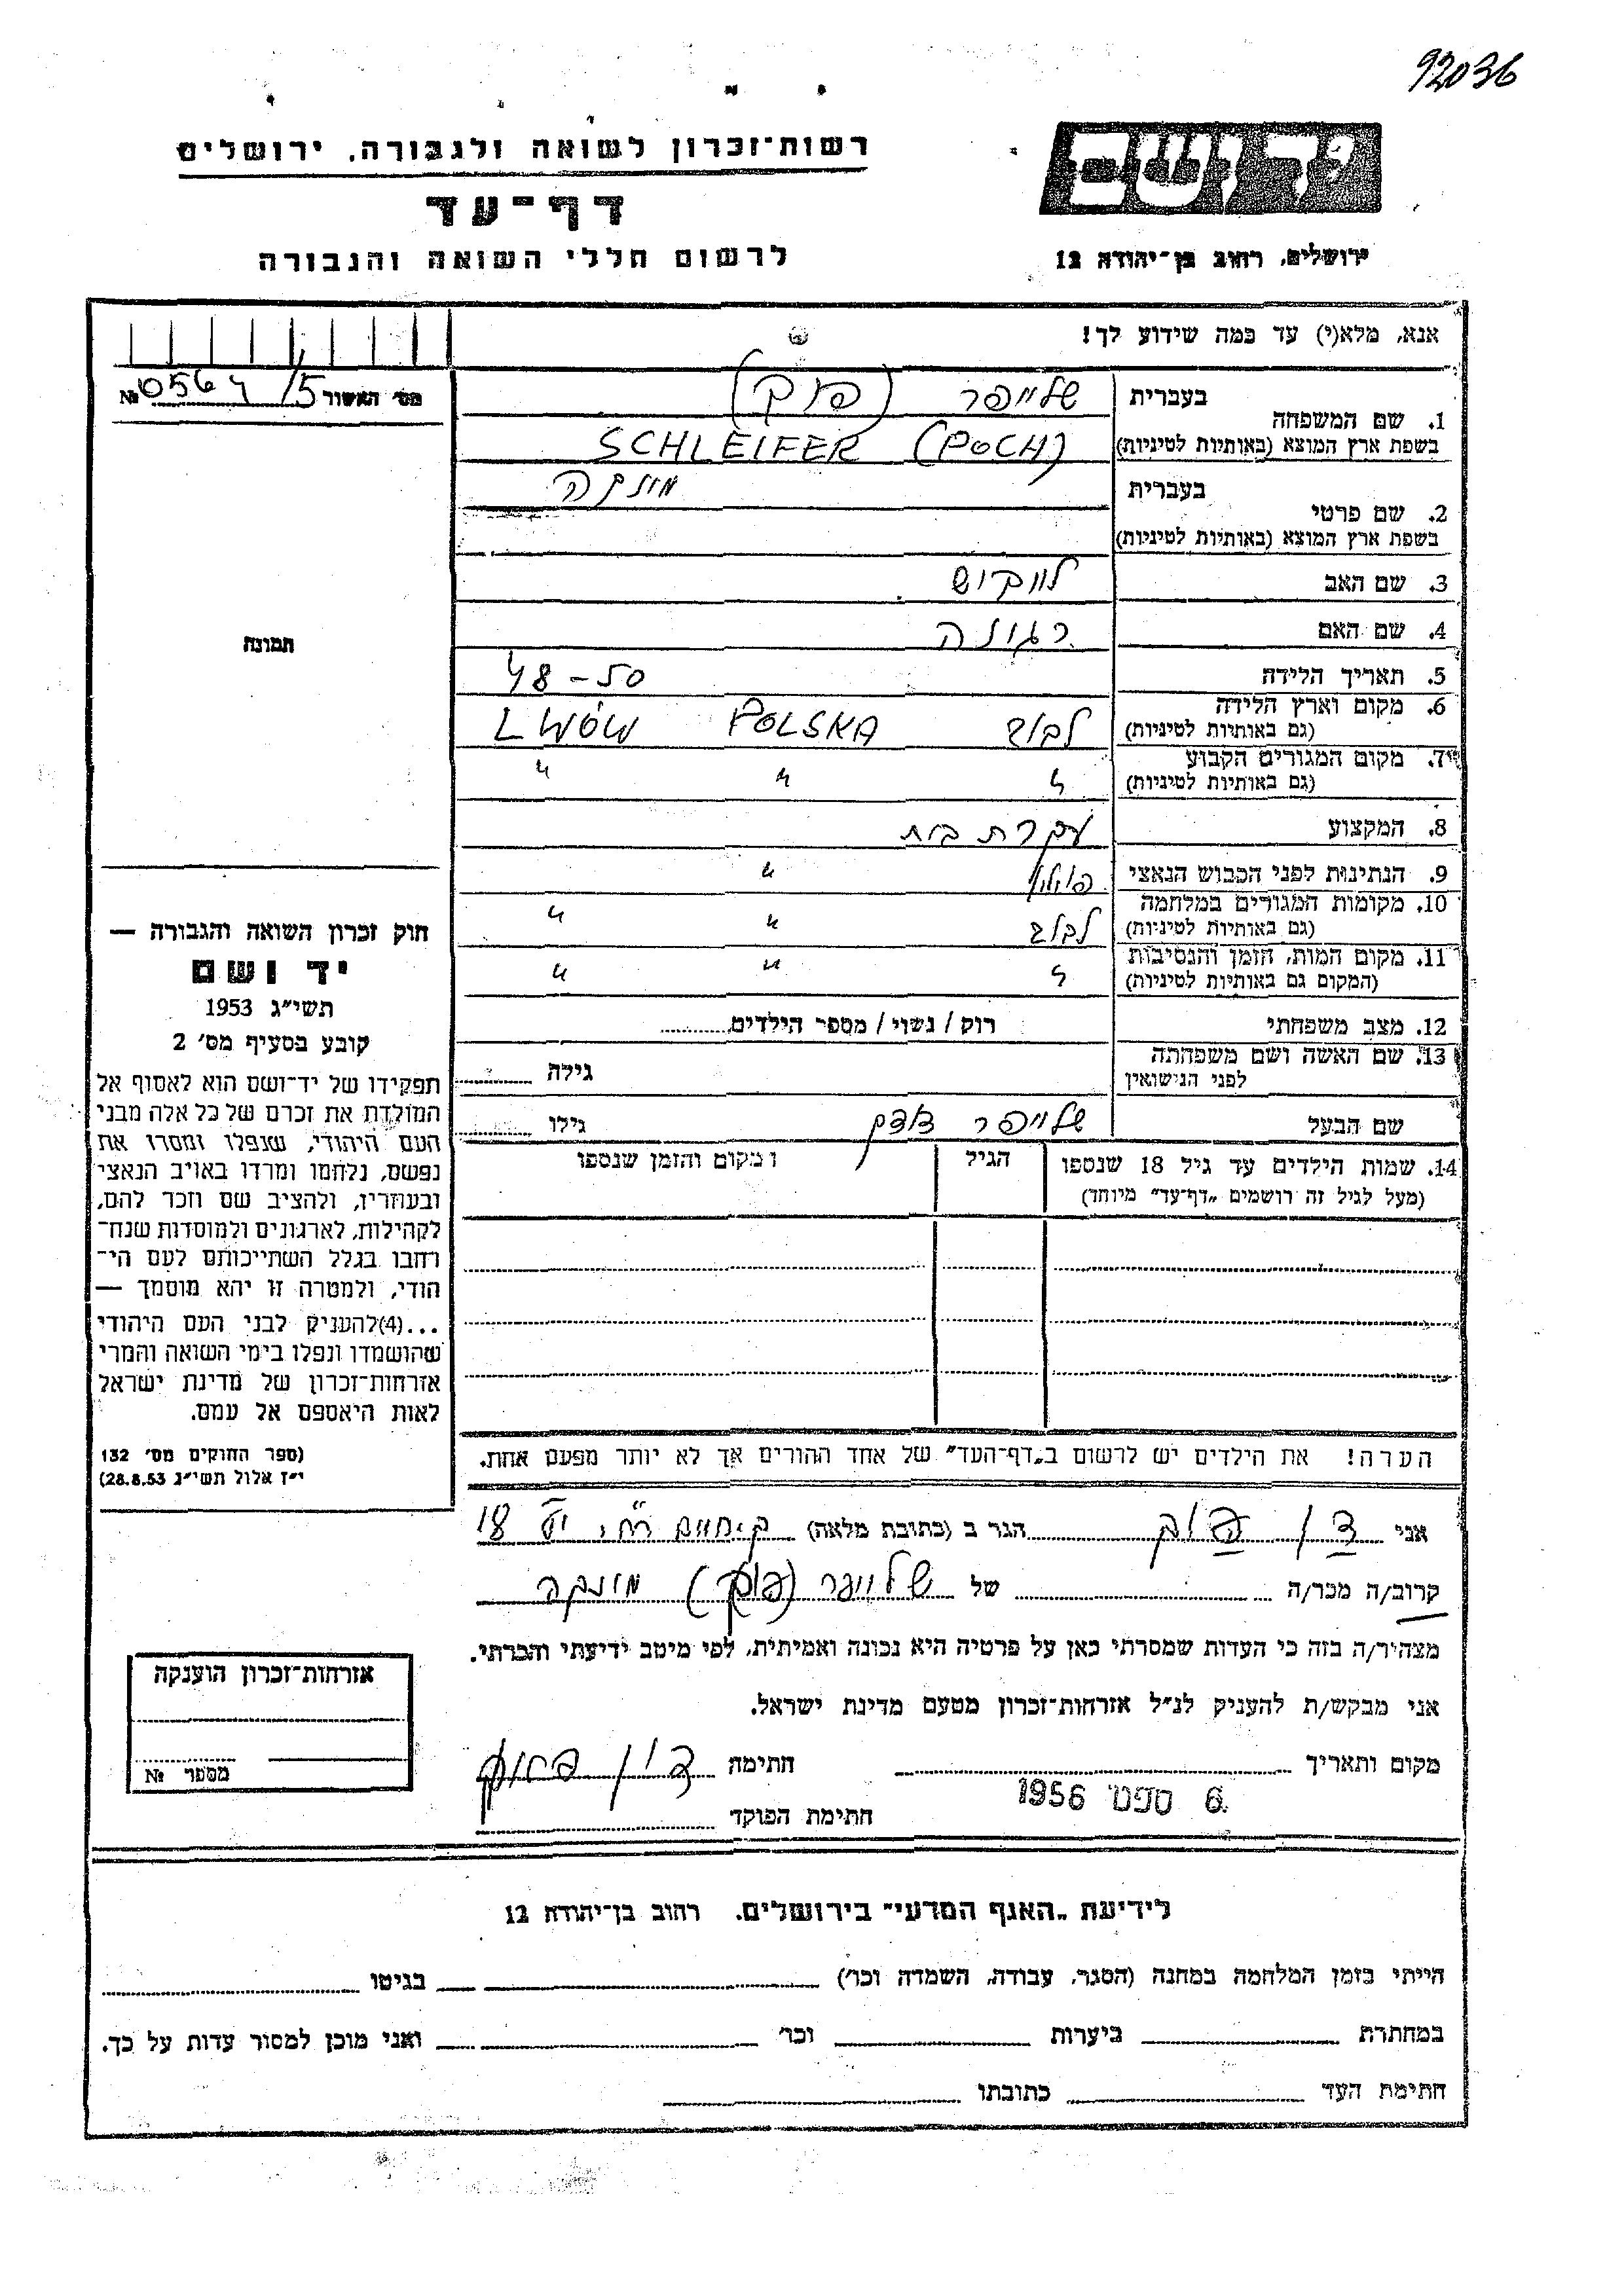 92036
יד ושם
רשות־זכרון לשואה ולגבורה, ירושלים
דף־עד
לרשום חללי השואה והגבורה
ירושלים, רחוב בן־יהודה 12
אנא, מלא(י) עד כמה שידוע לך!
מס' האשור №
1. שם המשפחה
בעברית שלייפר (פוך)
בשפת ארץ המוצא (באותיות לטיניות) SCHLEIFER (POCH)
2. שם פרטי
בעברית
בשפת ארץ המוצא (באותיות לטיניות)
3. שם האב
4. שם האם רגינה
5. תאריך הלידה 48-50
6. מקום וארץ הלידה
(גם באותיות לטיניות) לבוב POLSKA LWÓW
7. מקום המגורים הקבוע
(גם באותיות לטיניות) " " "
8. המקצוע עקרת בית
9. הנתינות לפני הכבוש הנאצי פולין "
10. מקומות המגורים במלחמה
(גם באותיות לטיניות) לבוב " "
11. מקום המות, הזמן והנסיבות
(המקום גם באותיות לטיניות) " " "
12. מצב משפחתי רוק / נשוי / מספר הילדים
13. שם האשה ושם משפחתה
לפני הנישואין גילה
שם הבעל שלייפר גילו
14. שמות הילדים עד גיל 18 שנספו הגיל ומקום והזמן שנספו
(מעל לגיל זה רושמים „דף־עד" מיוחד)
הערה! את הילדים יש לרשום ב„דף־העד" של אחד ההורים אך לא יותר מפעם אחת.
תמונה
חוק זכרון השואה והגבורה —
יד ושם
תשי"ג 1953
קובע בסעיף מס' 2
תפקידו של יד־ושם הוא לאסוף אל
המולדת את זכרם של כל אלה מבני
העם היהודי, שנפלו ומסרו את
נפשם, נלחמו ומרדו באויב הנאצי
ובעוזריו, ולהציב שם וזכר להם,
לקהילות, לארגונים ולמוסדות שנח־
רחבו בגלל השתייכותם לעם הי־
הודי, ולמטרה זו יהא מוסמך —
...(4)להעניק לבני העם היהודי
שהושמדו ונפלו בימי השואה והמרי
אזרחות־זכרון של מדינת ישראל
לאות היאספם אל עמם.
(ספר החוקים מס' 132
י"ז אלול תשי"ג 28.8.53)
אני פוך הגר ב (כתובת מלאה) 18
קרוב/ה מכר/ה של שלייפר (פוך)
מצהיר/ה בזה כי העדות שמסרתי כאן על פרטיה היא נכונה ואמיתית, לפי מיטב ידיעתי והכרתי.
אני מבקש/ת להעניק לנ"ל אזרחות־זכרון מטעם מדינת ישראל.
מקום ותאריך חתימה
6 ספט' 1956
חתימת הפוקד
אזרחות־זכרון הוענקה
מספר №
לידיעת „האגף המדעי" בירושלים, רחוב בן־יהודה 12
הייתי בזמן המלחמה במחנה (הסגר, עבודה, השמדה וכו') בגיטו
במחתרת ביערות וכו' ואני מוכן למסור עדות על כך.
חתימת העד כתובתו